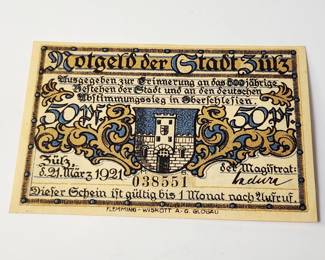 Notgeld der Stadt Zülz
Ausgegeben zur Erinnerung an das 800jährige
Bestehen der Stadt und an den deutschen
Abstimmungssieg in Oberschlesien.
50Pf. 50Pf.
Zülz, der Magistrat:
d. 21. März 1921
038551
Dieser Schein ist gültig bis 1 Monat nach Aufruf.
FLEMMING-WISKOTT A-G. GLOGAU